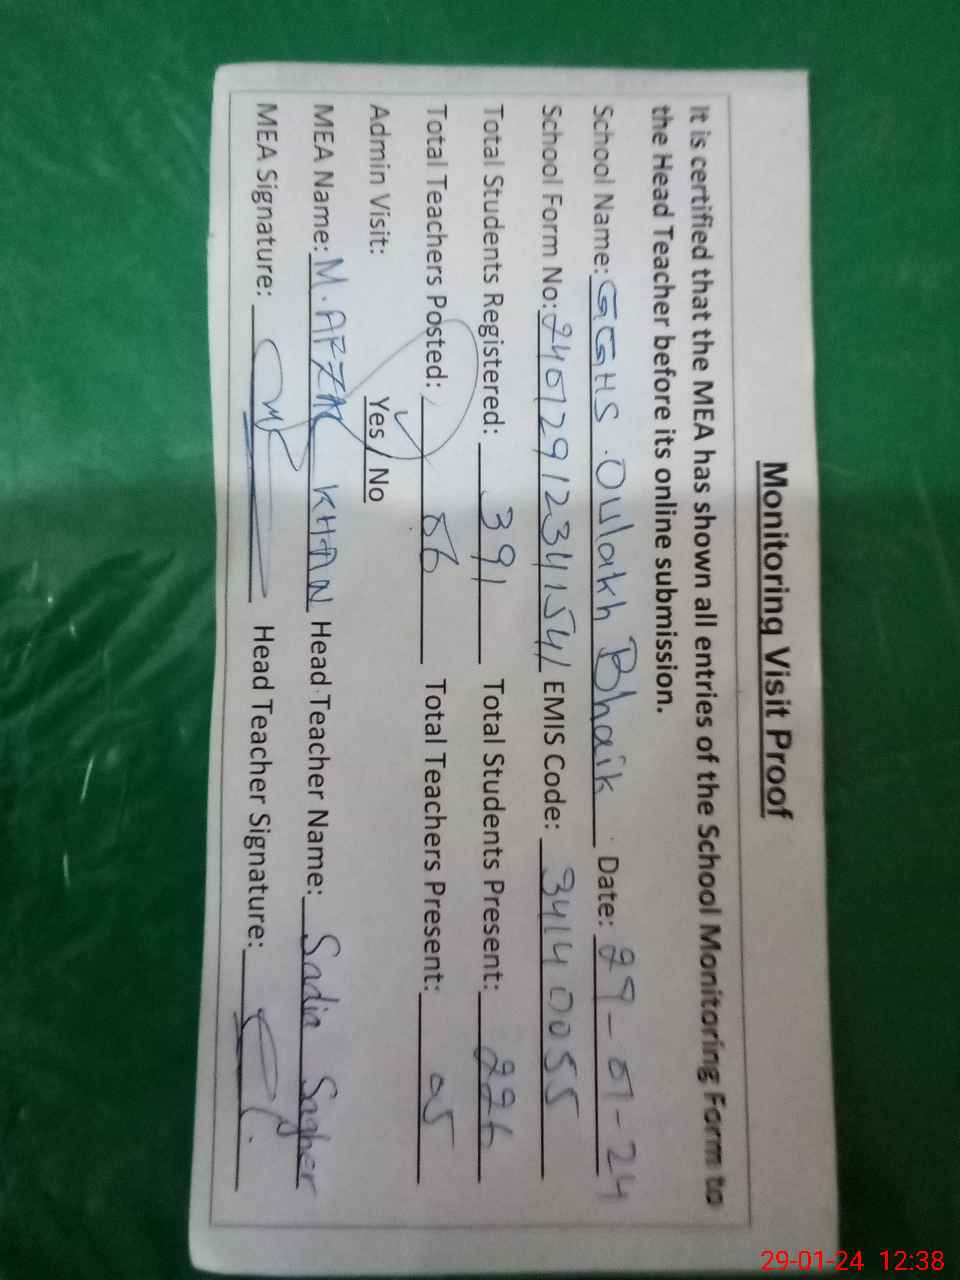 Monitoring Visit Proof
It is certified that the MEA has shown all entries of the School Monitoring Form to
the Head Teacher before its online submission.
School Name: GGHS. Oulakh Bhaik Date: 29-01-24
School Form No: 2401291234154/ EMIS Code: 34140055
Total Students Registered: 391 Total Students Present: 226
Total Teachers Posted: 06 Total Teachers Present: 05
Admin Visit: Yes / No
MEA Name: M. AFZAL KHAN Head Teacher Name: Sadia Sagher
MEA Signature: Head Teacher Signature:
29-01-24 12:38